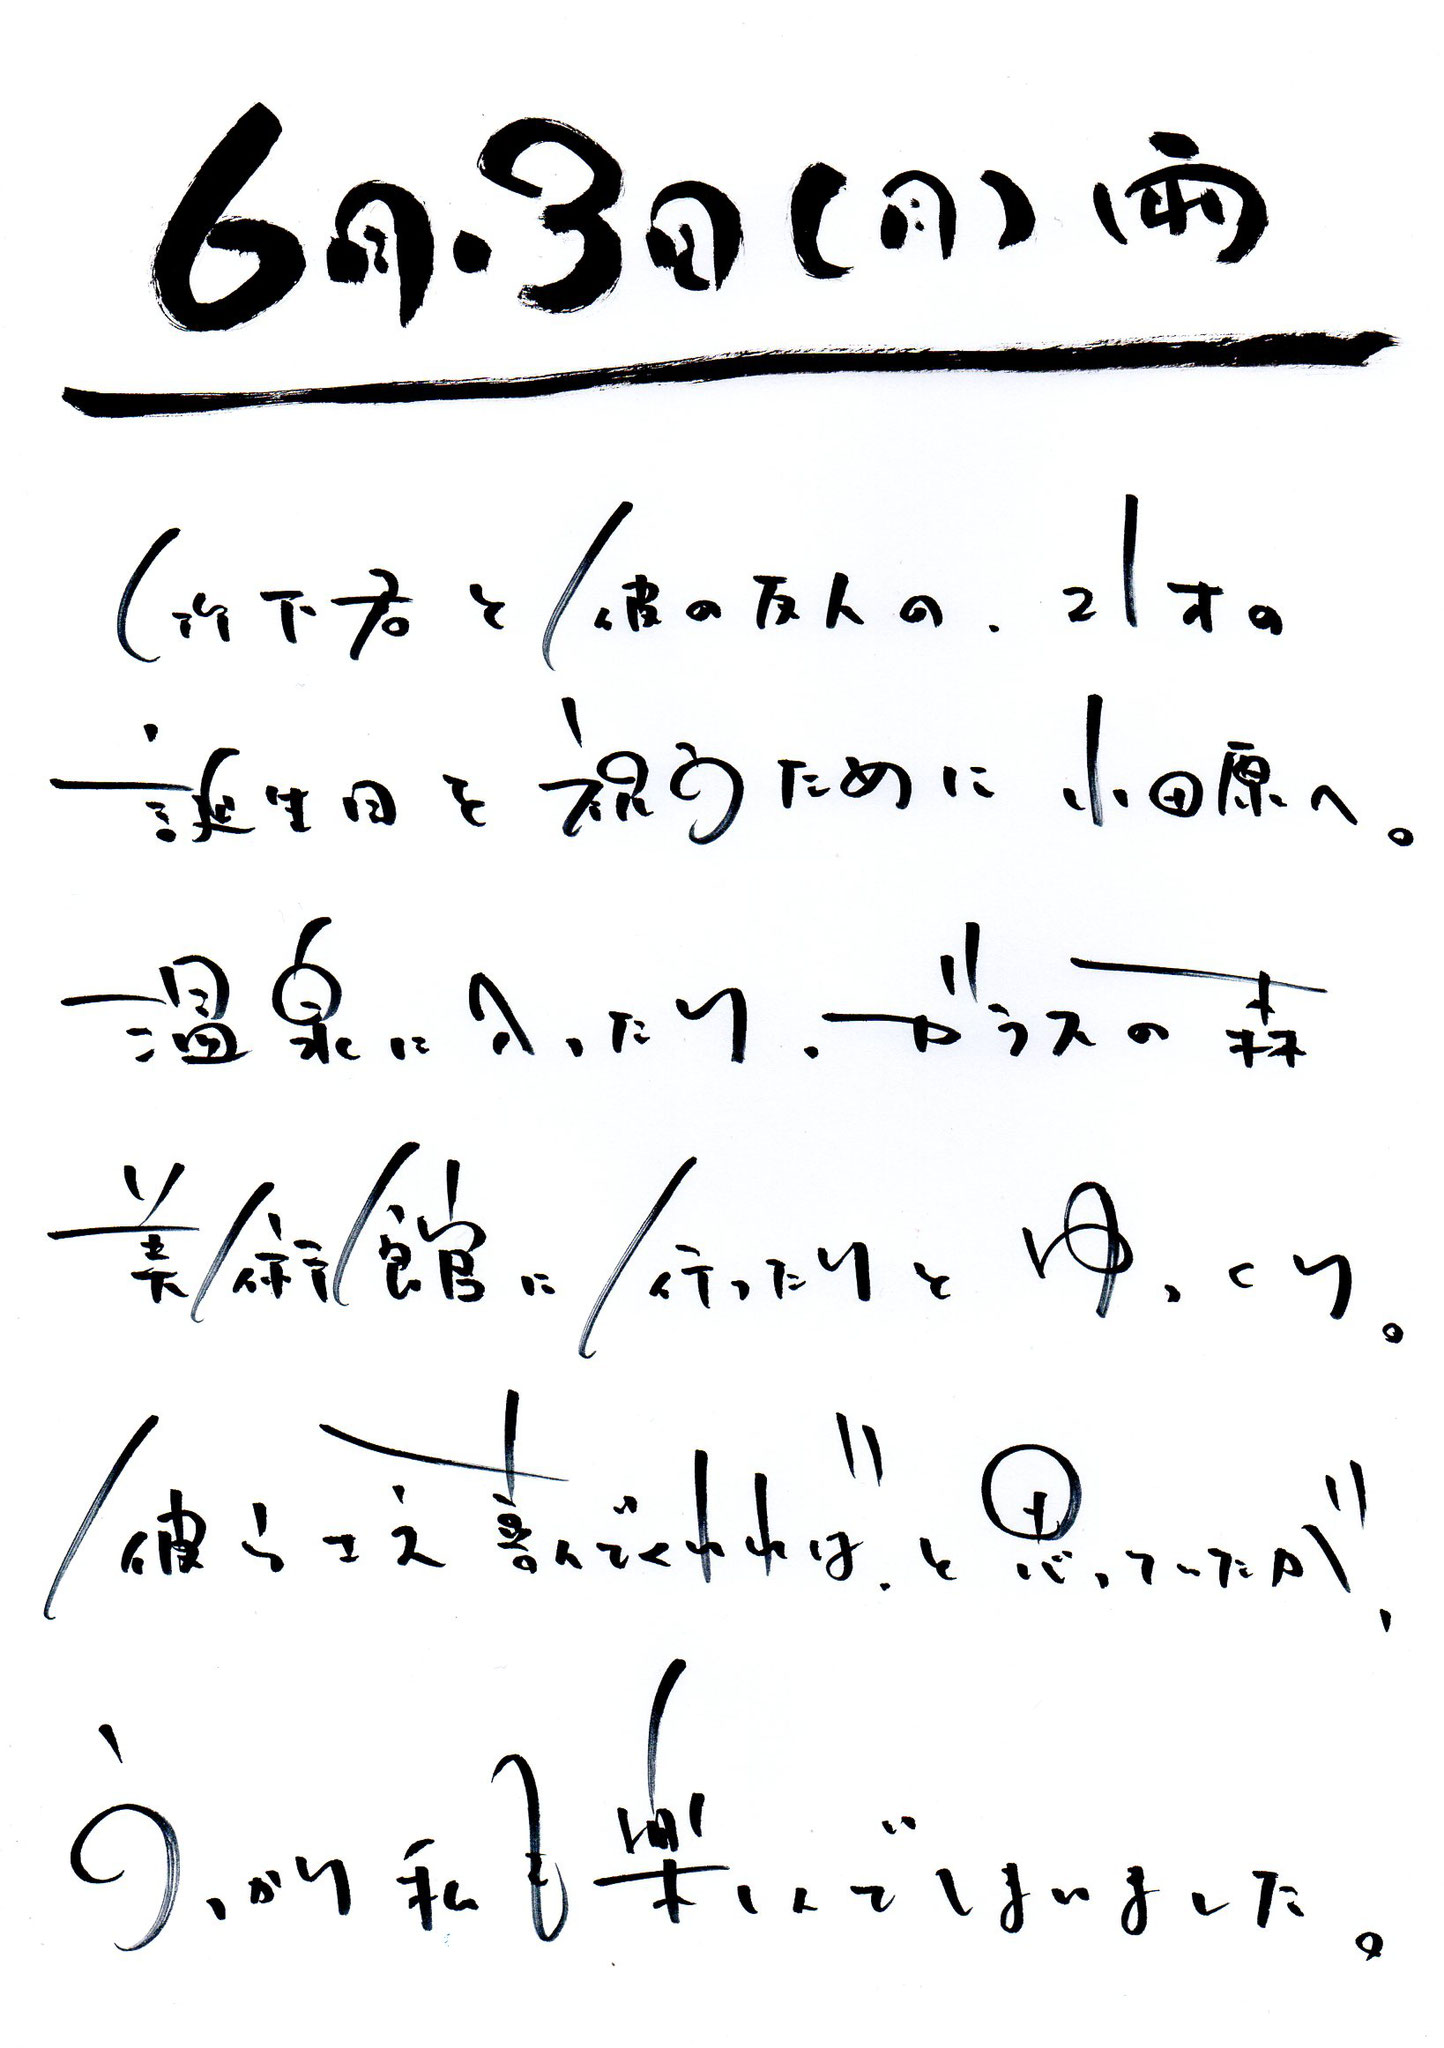 6月.3日(月)雨
竹下君と彼の友人の、21才の
誕生日を祝うために小田原へ。
温泉に入ったり、ガラスの森
美術館に行ったりとゆっくり。
彼らさえ喜んでくれれば、と思っていたが、
うっかり私も楽しんでしまいました。